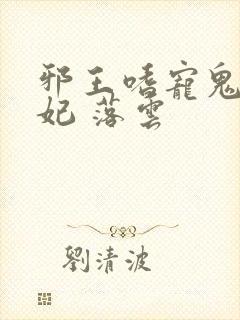 邪王嗜寵鬼
妃 落雲
劉清波